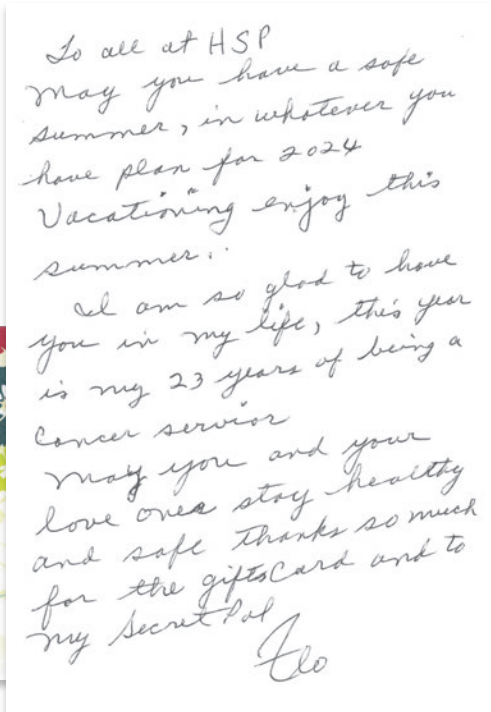 To all at HSP
May you have a safe
summer, in whatever you
have plan for 2024
Vacationing enjoy this
summer.
I am so glad to have
you in my life, this year
is my 23 years of being a
Cancer servior
May you and your
love ones stay healthy
and safe thanks so much
for the gifts Card and to
my Secret Pal
Flo